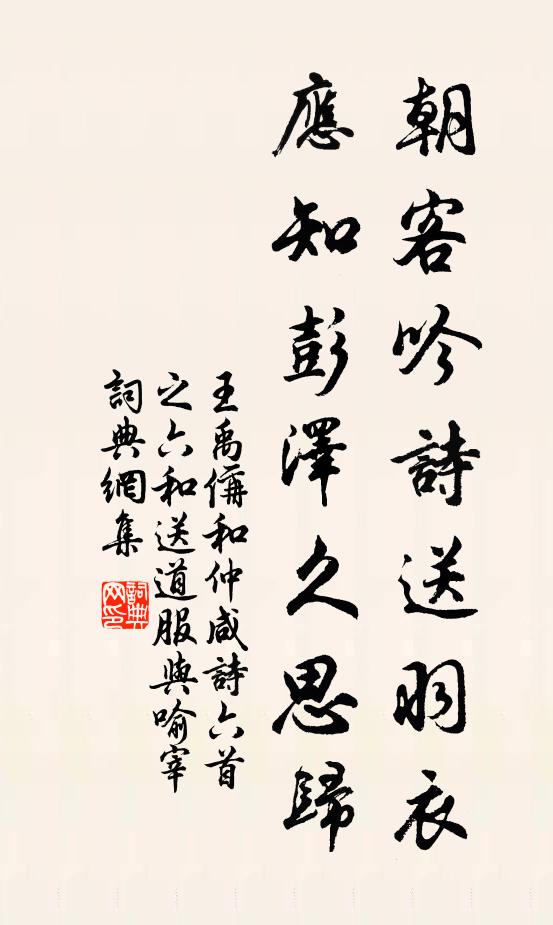 朝客吟詩送羽衣
應知彭澤久思歸
王禹偁和仲咸詩六首
之六和送道服與喻宰
詞典網集
詞典
网印